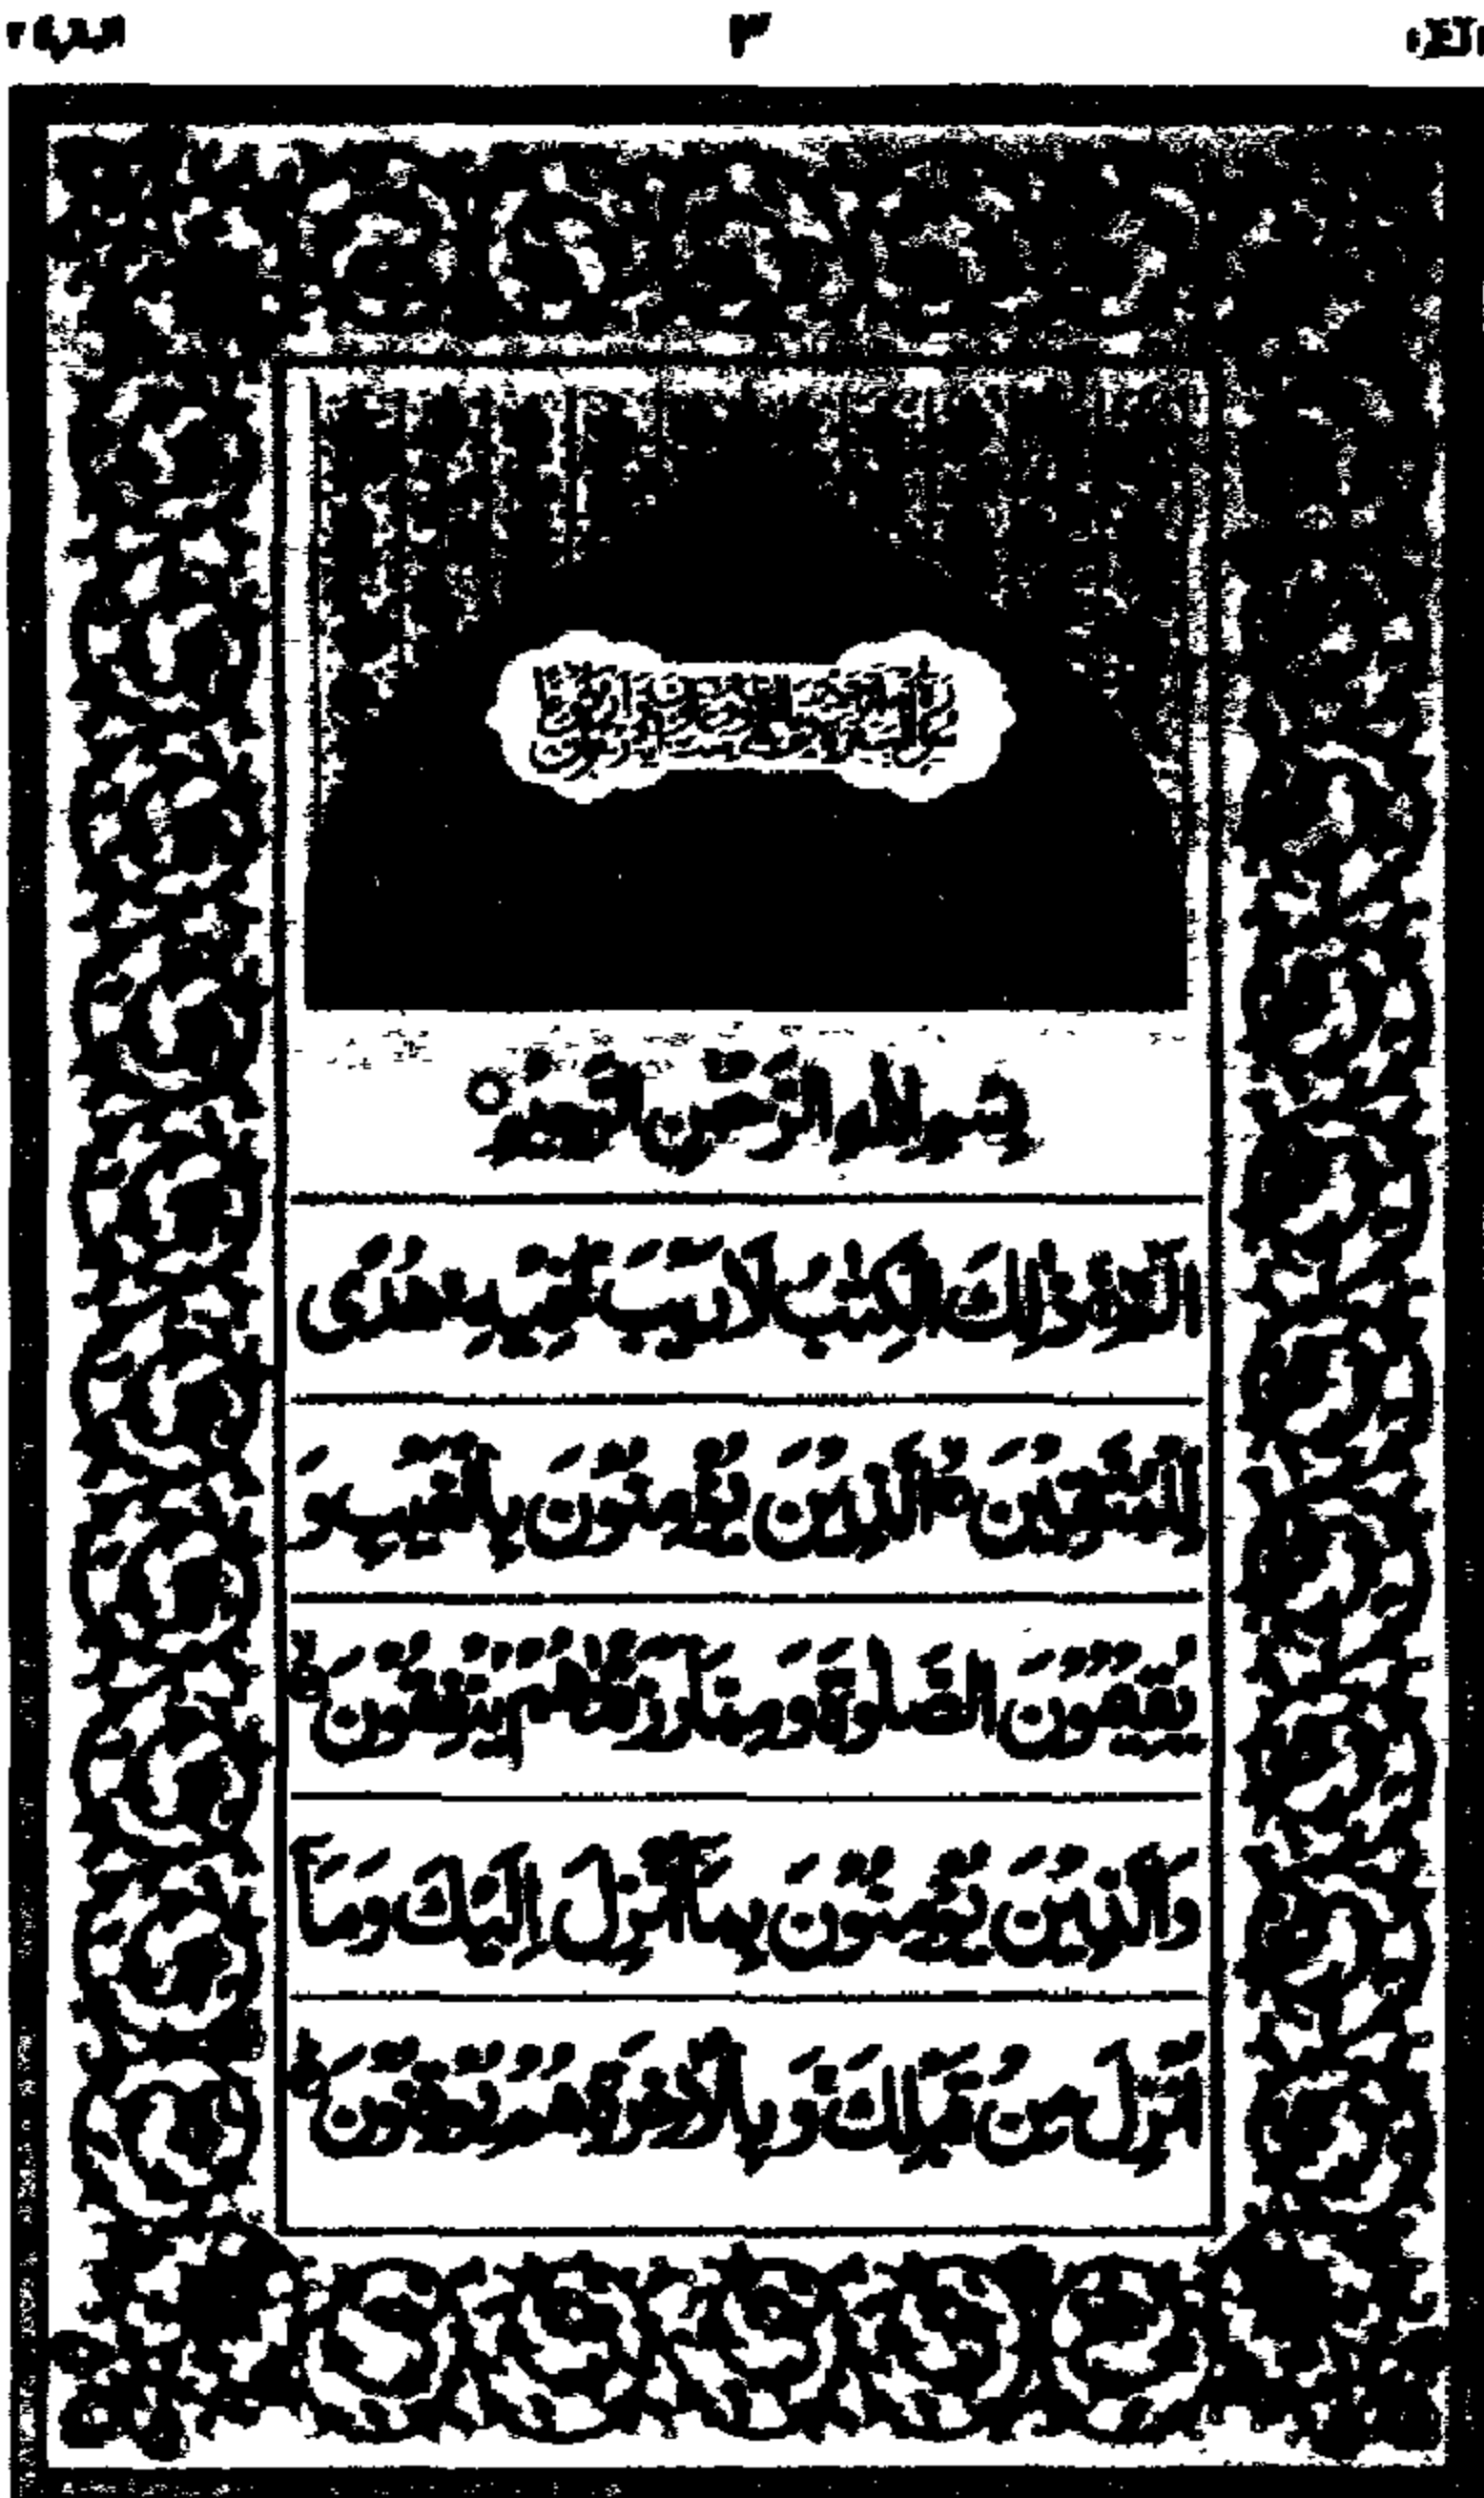 بِسْمِ اللهِ الرَّحْمٰنِ الرَّحِيْمِ ○
الٓمّٓ ذٰلِكَ الْكِتٰبُ لَا رَيْبَ فِيْهِ هُدًى
لِّلْمُتَّقِيْنَ الَّذِيْنَ يُؤْمِنُوْنَ بِالْغَيْبِ وَ
يُقِيْمُوْنَ الصَّلٰوةَ وَمِمَّا رَزَقْنٰهُمْ يُنْفِقُوْنَ
وَالَّذِيْنَ يُؤْمِنُوْنَ بِمَآ اُنْزِلَ اِلَيْكَ وَمَآ
اُنْزِلَ مِنْ قَبْلِكَ وَبِالْاٰخِرَةِ هُمْ يُوْقِنُوْنَ